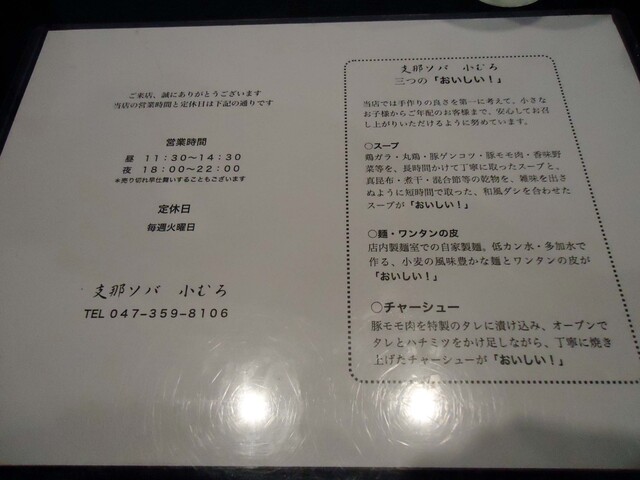 ご来店、誠にありがとうございます
当店の営業時間と定休日は下記の通りです
営業時間
昼 11:30〜14:30
夜 18:00〜22:00
＊売り切れ早仕舞いすることもございます
定休日
毎週火曜日
支那ソバ 小むろ
TEL 047-359-8106
支那ソバ 小むろ
三つの「おいしい！」
当店では手作りの良さを第一に考えて、小さな
お子様からご年配のお客様まで、安心してお召
し上がりいただけるように努めています。
○スープ
鶏ガラ・丸鶏・豚ゲンコツ・豚モモ肉・香味野
菜等を、長時間かけて丁寧に取ったスープと、
真昆布・煮干・混合節等の乾物を、雑味を出さ
ぬように短時間で取った、和風ダシを合わせた
スープが「おいしい！」
○麺・ワンタンの皮
店内製麺室での自家製麺。低カン水・多加水で
作る、小麦の風味豊かな麺とワンタンの皮が
「おいしい！」
○チャーシュー
豚モモ肉を特製のタレに漬け込み、オーブンで
タレとハチミツをかけ足しながら、丁寧に焼き
上げたチャーシューが「おいしい！」